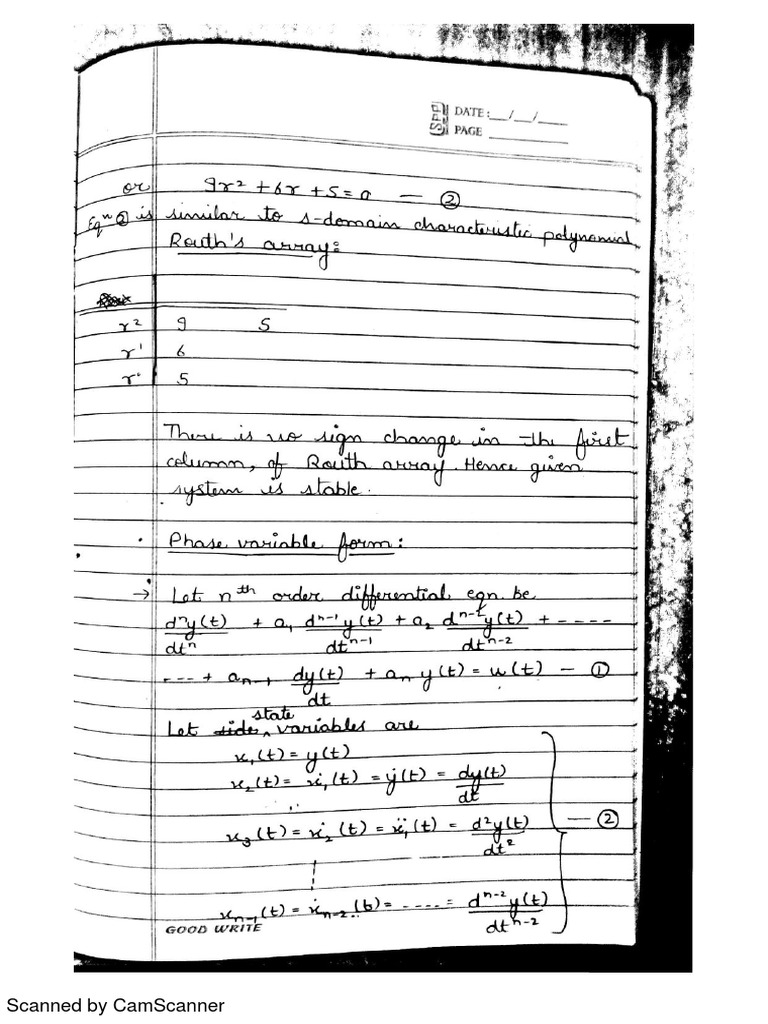 DATE:__/__/____
PAGE ________
or 9r² + 6r + 5 = 0 — ②
Eqⁿ ② is similar to s-domain characteristic polynomial
Routh's array:
r² 9 5
r¹ 6
r° 5
There is no sign change in the first
column, of Routh array. Hence given
system is stable.
Phase variable form:
→ Let nᵗʰ order differential eqn. be
dⁿy(t)/dtⁿ + a₁ dⁿ⁻¹y(t)/dtⁿ⁻¹ + a₂ dⁿ⁻²y(t)/dtⁿ⁻² + ----
--- + aₙ₋₁ dy(t)/dt + aₙ y(t) = u(t) — ①
Let state variables are
x₁(t) = y(t)
x₂(t) = ẋ₁(t) = ẏ(t) = dy(t)/dt
x₃(t) = ẋ₂(t) = ẍ₁(t) = d²y(t)/dt² — ②
xₙ₋₁(t) = ẋₙ₋₂(t) = ---- = dⁿ⁻²y(t)/dtⁿ⁻²
GOOD WRITE
Scanned by CamScanner